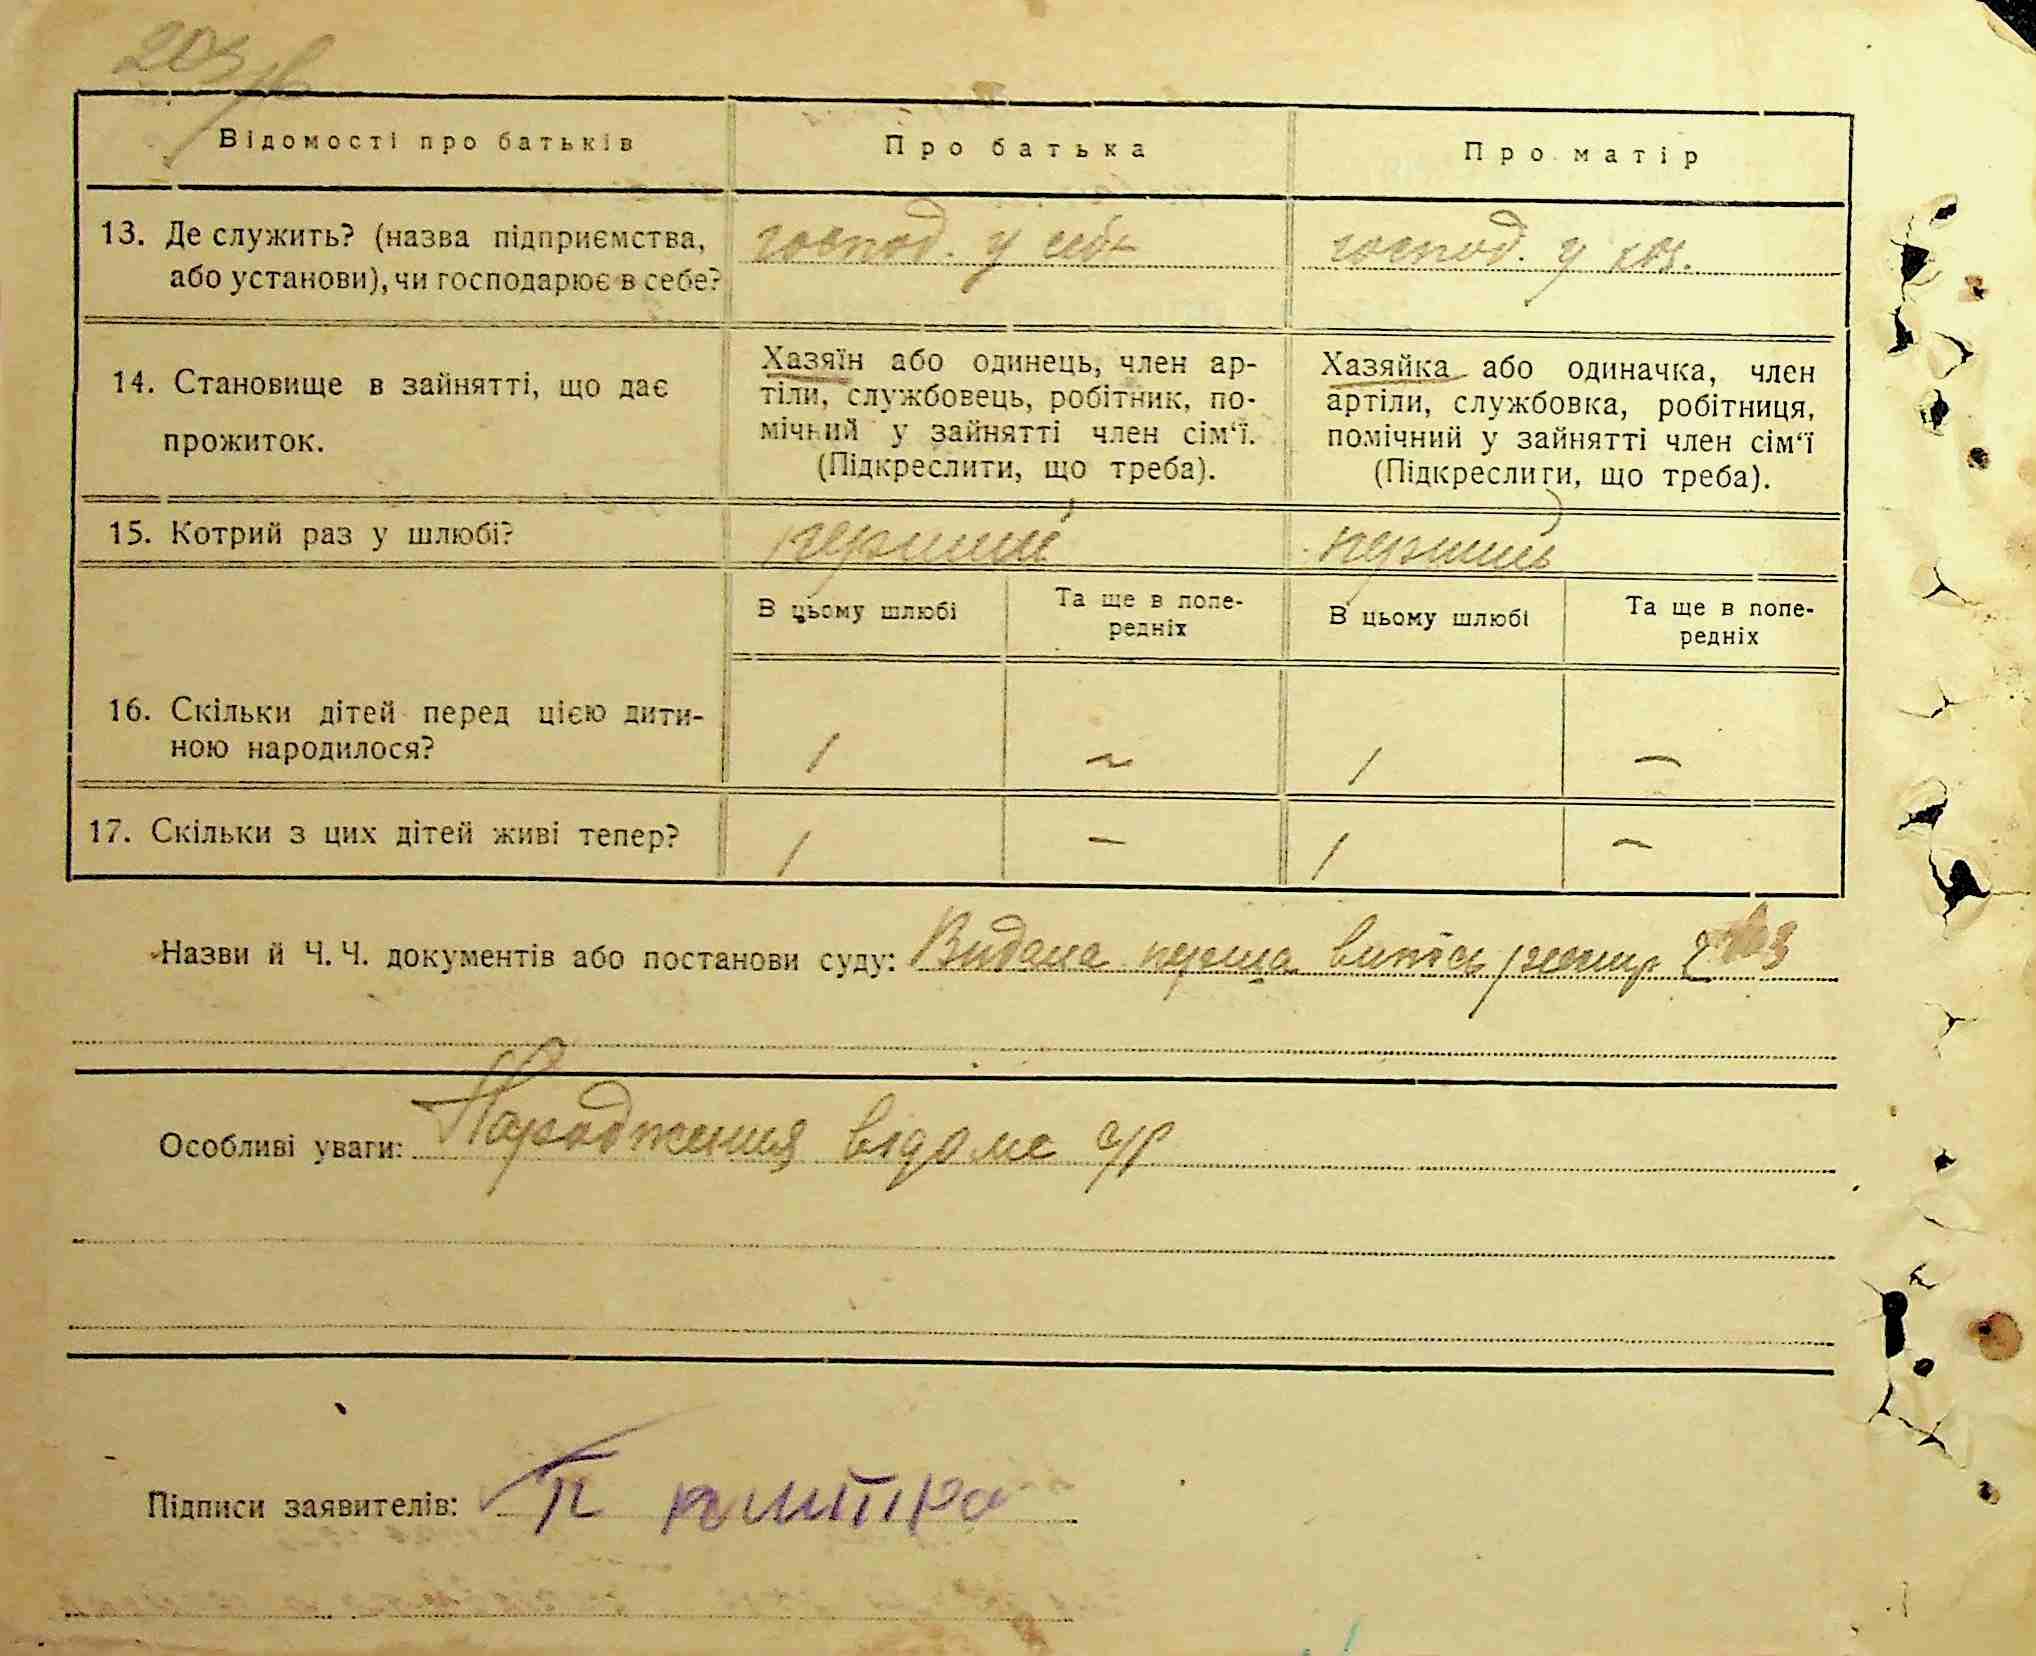 203/в
Відомості про батьків
Про батька
Про матір
13. Де служить? (назва підприємства,
або установи), чи господарює в себе?
господ. у себе
господ. у хоз.
14. Становище в зайнятті, що дає
прожиток.
Хазяїн або одинець, член ар-
тіли, службовець, робітник, по-
мічний у зайнятті член сім‘ї.
(Підкреслити, що треба).
Хазяйка або одиначка, член
артіли, службовка, робітниця,
помічний у зайнятті член сім‘ї
(Підкреслити, що треба).
15. Котрий раз у шлюбі?
перший
перший
В цьому шлюбі
Та ще в попе-
редніх
В цьому шлюбі
Та ще в попе-
редніх
16. Скільки дітей перед цією дити-
ною народилося?
1 – 1 –
17. Скільки з цих дітей живі тепер?
1 – 1 –
Назви й Ч. Ч. документів або постанови суду: Видана перша випись
Особливі уваги: Народження відоме с/р
Підписи заявителів: П